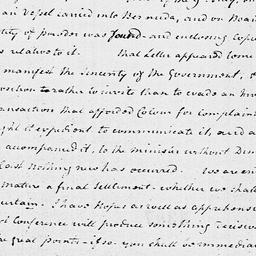 an vessel carried into Bermuda, and on Boar
tity of powder was found - and enclosing Copie
s relative to it. That Letter appeared to me
manifest the Sincerity of the Government,
position rather to invite than to evade an Inv
ansaction that afforded Colour for complain
ght it expedient to communicate it, and a
accompanied it, to the Minister without De
Cost nothing new has occurred. We are en
mature a final Settlement - whether we shall
certain. I have Hopes as well as apprehens
t Conference will produce something decisiv
he great points - if so you shall be immedia